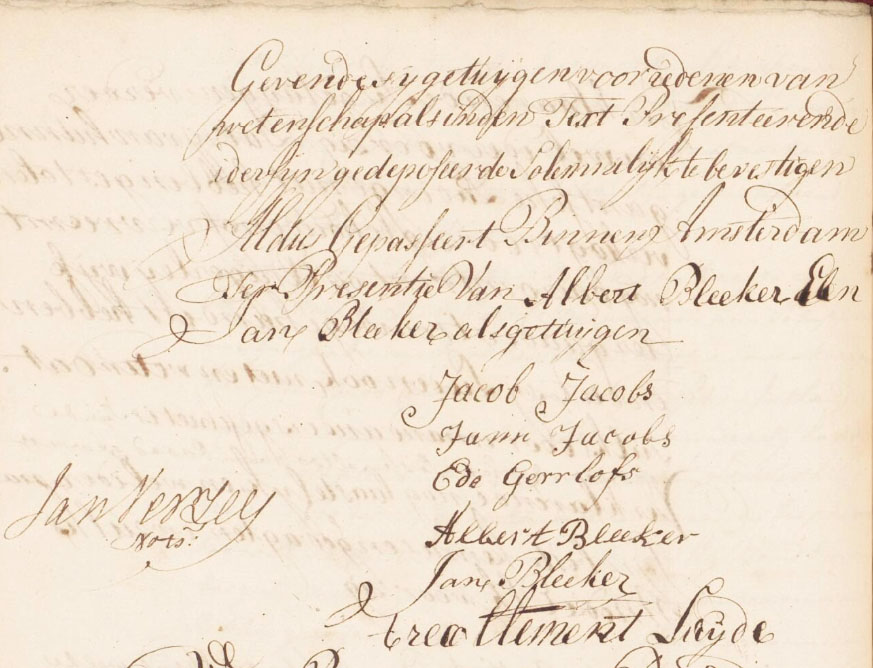 Gevende sy getuijgen voor redenen van
wetenschap als inden Text Presenteerende
ider syn gedeposeerde Solemnelijk te bevestigen
Aldus Gepasseert Binnen Amsterdam
Ter Presentie Van Albert Bleeker En
Jan Bleeker als getuijgen
Jacob Jacobs
Jann Jacobs
Ede Gerrlofs
Jan Verleij
Nots:
Albert Bleeker
Jan Bleeker
't recollement Luijde